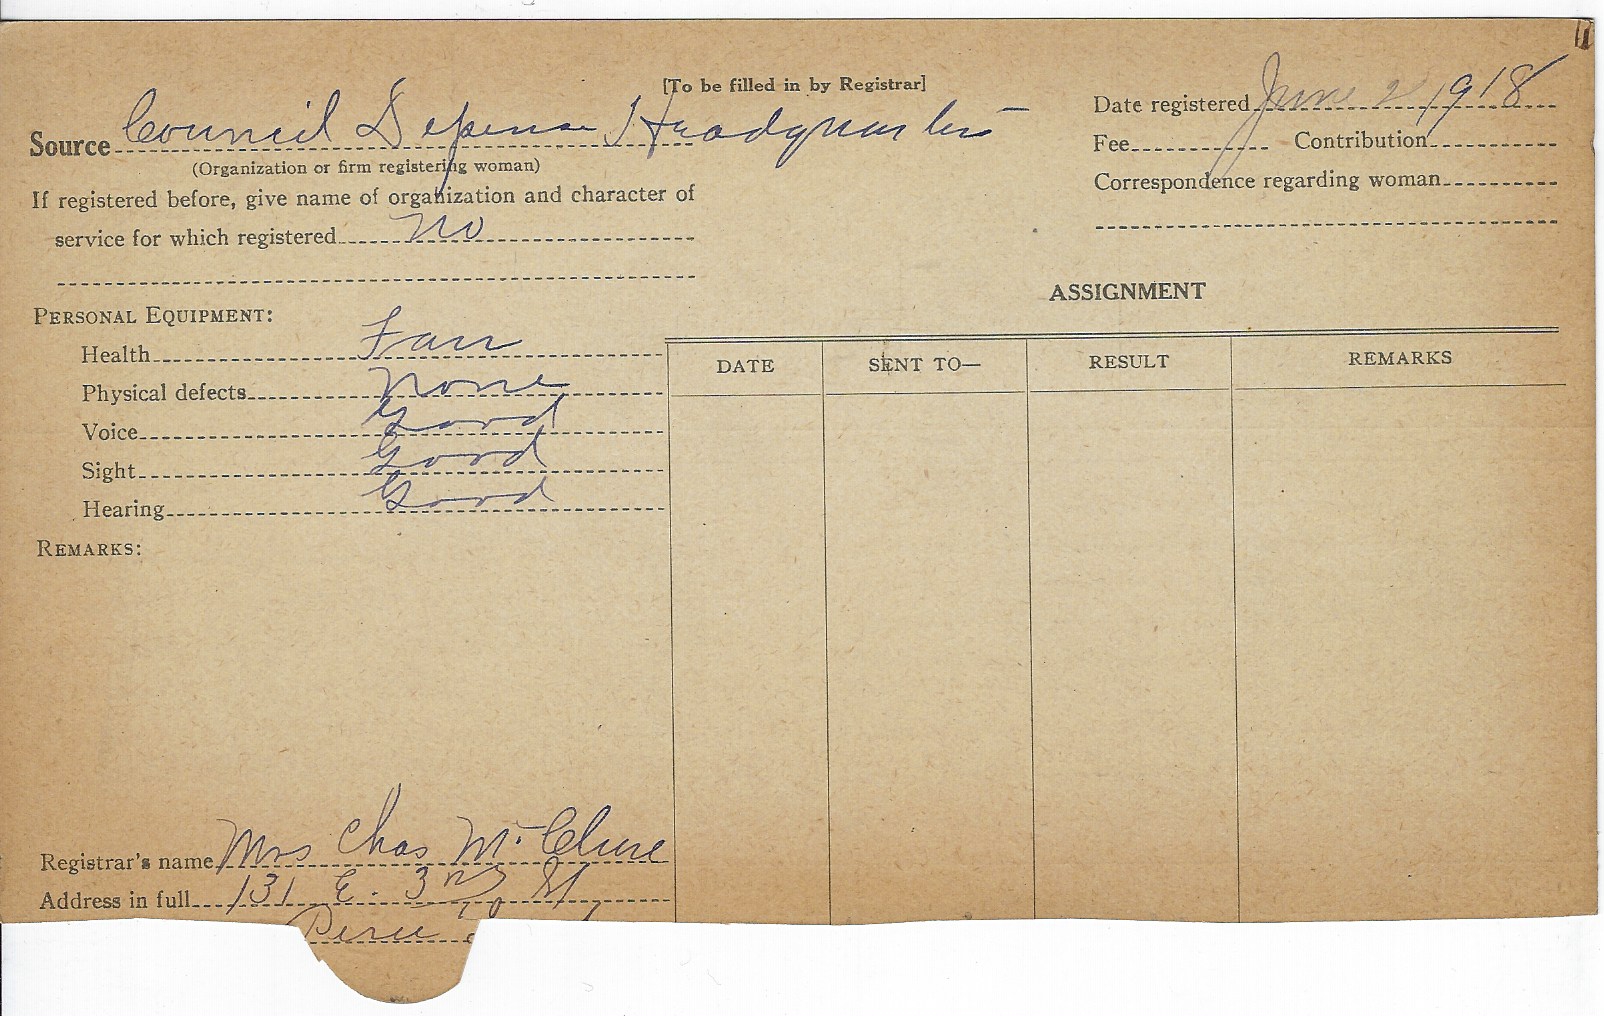 [To be filled in by Registrar]
Source Council Defense Headquarters
(Organization or firm registering woman)
If registered before, give name of organization and character of
service for which registered No
Date registered June 2, 1918
Fee Contribution
Correspondence regarding woman
PERSONAL EQUIPMENT:
Health Fair
Physical defects None
Voice Good
Sight Good
Hearing Good
REMARKS:
ASSIGNMENT
DATE SENT TO— RESULT REMARKS
Registrar's name Mrs Chas McClure
Address in full 131 E. 3rd St
Peru